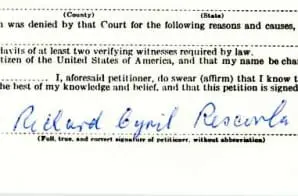 (County) (State)
n was denied by that Court for the following reasons and causes,
davits of at least two verifying witnesses required by law.
tizen of the United States of America, and that my name be cha
I, aforesaid petitioner, do swear (affirm) that I know t
he best of my knowledge and belief, and that this petition is signed
Richard Cyril Rescorla
(Full, true, and correct signature of petitioner, without abbreviation)